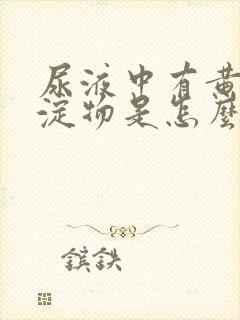 尿液中有黄
淀物是怎麼
鎄鉄